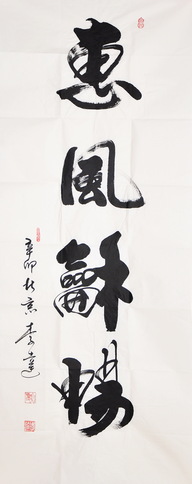 惠風龢暢
辛卯於京李達